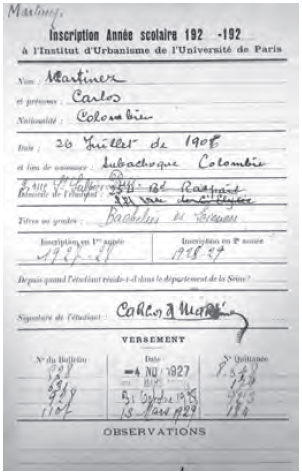 Martinez
Inscription Année scolaire 192 -192
à l'Institut d'Urbanisme de l'Université de Paris
Nom : Martinez
et prénoms : Carlos
Nationalité : Colombien
Date : 26 Juillet de 1908
et lieu de naissance : Subachoque Colombie
Demeure de l'étudiant : Bd Raspail
Titres ou grades : Bachelier
Inscription en 1re année Inscription en 2e année
1927-28 1928-29
Depuis quand l'étudiant réside-t-il dans le département de la Seine?
Signature de l'étudiant : Carlos Martínez
VERSEMENT
No du Bulletin Date No Quittance
-4 NO 1927
31 Octobre
1107 13 Mars 1929 184
OBSERVATIONS